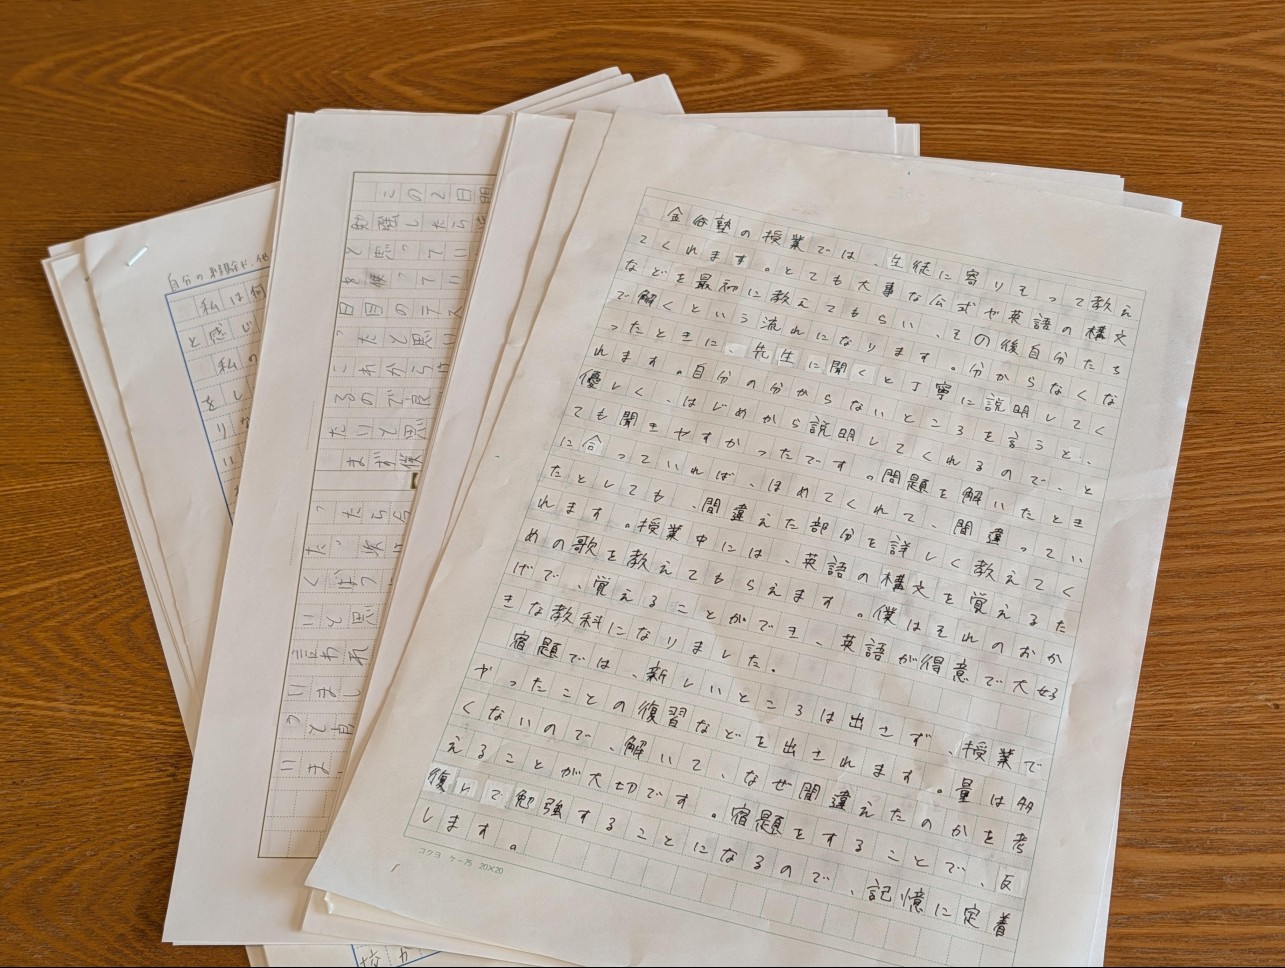 自分の
私は何
と感じ
私の
をし
この2日間
勉強したら
と思ってい
日目のテス
たと思い
これから
るので良
たいと思
まず僕
ったら合
いと思
言われ
いまし
金谷塾の授業では、生徒に寄りそって教え
てくれます。とても大事な公式や英語の構文
などを最初に教えてもらい、その後自分たち
で解くという流れになります。分からなくな
ったときに、先生に聞くと丁寧に説明してく
れます。自分の分からないところを言うと、
優しく、はじめから説明してくれるので、と
ても聞きやすかったです。問題を解いたとき
に合っていれば、ほめてくれて、間違ってい
たとしても、間違えた部分を詳しく教えてく
れます。授業中には、英語の構文を覚えるた
めの歌を教えてもらえます。僕はそれのおか
げで、覚えることができ、英語が得意で大好
きな教科になりました。
宿題では、新しいところは出さず、授業で
やったことの復習などを出されます。量は多
くないので、解いて、なぜ間違えたのかを考
えることが大切です。宿題をすることで、反
復して勉強することになるので、記憶に定着
します。
コクヨ ケー75 20×20